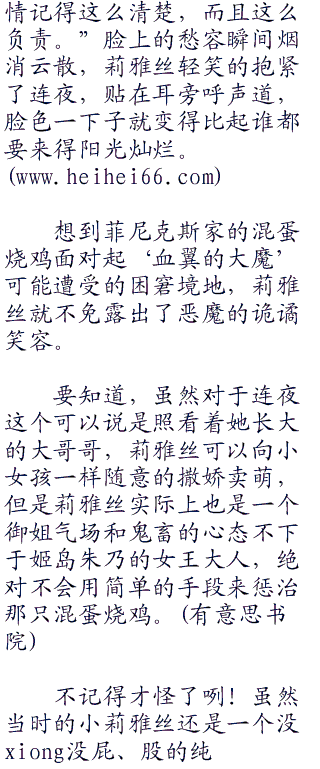 情记得这么清楚，而且这么
负责。”脸上的愁容瞬间烟
消云散，莉雅丝轻笑的抱紧
了连夜，贴在耳旁呼声道，
脸色一下子就变得比起谁都
要来得阳光灿烂。
(www.heihei66.com)
想到菲尼克斯家的混蛋
烧鸡面对起‘血翼的大魔’
可能遭受的困窘境地，莉雅
丝就不免露出了恶魔的诡谲
笑容。
要知道，虽然对于连夜
这个可以说是照看着她长大
的大哥哥，莉雅丝可以向小
女孩一样随意的撒娇卖萌，
但是莉雅丝实际上也是一个
御姐气场和鬼畜的心态不下
于姬岛朱乃的女王大人，绝
对不会用简单的手段来惩治
那只混蛋烧鸡。(有意思书
院)
不记得才怪了咧！虽然
当时的小莉雅丝还是一个没
xiong没屁、股的纯